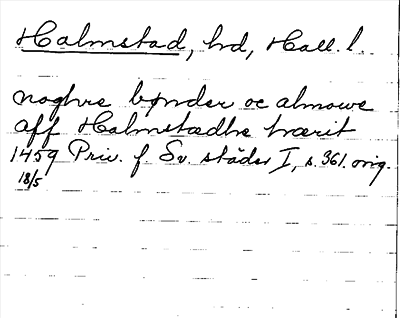 Halmstad, hd, Hall. l.
noghre bønder oc almowe
aff Halmstædhe hærit
1459 Priv. f. Sv. städer I, s. 361. orig.
18/5